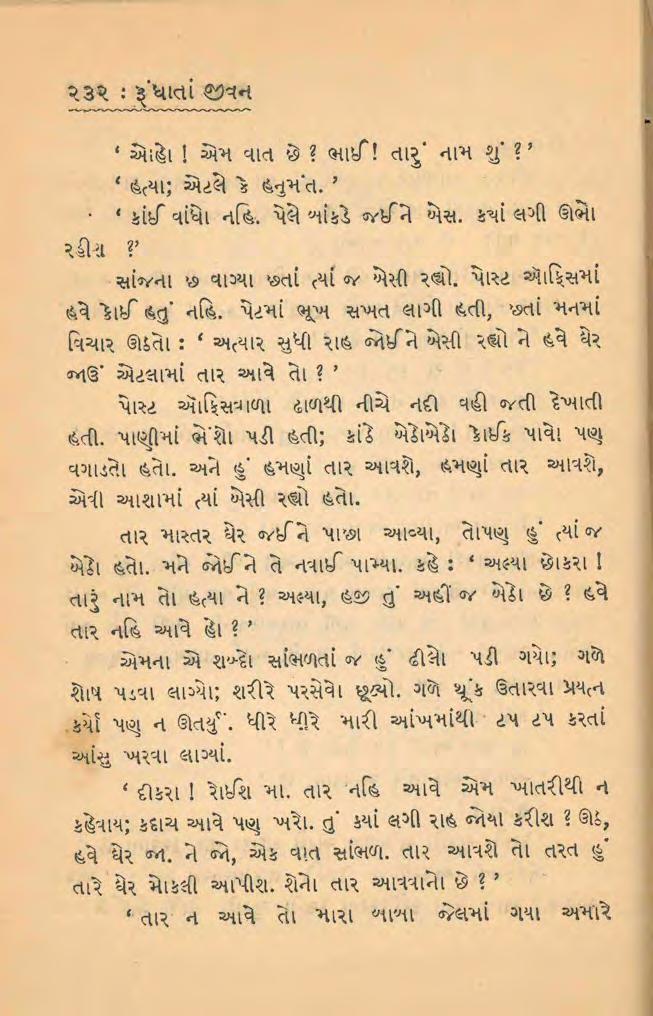 ૨૩૨ : રૂંધાતાં જીવન
‘ ઓહો ! એમ વાત છે ? ભાઈ ! તારું નામ શું ?’
‘ હત્યા; એટલે કે હનુમંત. ’
‘ કાંઈ વાંધો નહિ. પેલે બાંકડે જઈને બેસ. કયાં લગી ઊભો
રહીશ ?’
સાંજના છ વાગ્યા છતાં ત્યાં જ બેસી રહ્યો. પોસ્ટ ઑફિસમાં
હવે કોઈ હતું નહિ. પેટમાં ભૂખ સખત લાગી હતી, છતાં મનમાં
વિચાર ઊઠતો : ‘ અત્યાર સુધી રાહ જોઈને બેસી રહ્યો ને હવે ઘેર
જાઉં એટલામાં તાર આવે તો ? ’
પોસ્ટ ઑફિસવાળા ઢાળથી નીચે નદી વહી જતી દેખાતી
હતી. પાણીમાં ભેંશો પડી હતી; કાંઠે બેઠોબેઠો કોઈક પાવો પણ
વગાડતો હતો. અને હું હમણાં તાર આવશે, હમણાં તાર આવશે,
એવી આશામાં ત્યાં બેસી રહ્યો હતો.
તાર માસ્તર ઘેર જઈને પાછા આવ્યા, તોપણ હું ત્યાં જ
બેઠો હતો. મને જોઈને તે નવાઈ પામ્યા. કહે : ‘ અલ્યા છોકરા !
તારું નામ તો હત્યા ને ? અલ્યા, હજી તું અહીં જ બેઠો છે ? હવે
તાર નહિ આવે હો ? ’
એમના એ શબ્દો સાંભળતાં જ હું ઢીલો પડી ગયો; ગળે
શોષ પડવા લાગ્યો; શરીરે પરસેવો છૂટ્યો. ગળે થૂંક ઉતારવા પ્રયત્ન
કર્યો પણ ન ઊતર્યું. ધીરે ધીરે મારી આંખમાંથી ટપ ટપ કરતાં
આંસુ ખરવા લાગ્યાં.
‘ દીકરા ! રોઈશ મા. તાર નહિ આવે એમ ખાતરીથી ન
કહેવાય; કદાચ આવે પણ ખરો. તું કયાં લગી રાહ જોયા કરીશ ? ઊઠ,
હવે ઘેર જા. ને જો, એક વાત સાંભળ. તાર આવશે તો તરત હું
તારે ઘેર મોકલી આપીશ. શેનો તાર આવવાનો છે ? ’
‘ તાર ન આવે તો મારા બાબા જેલમાં ગયા અમારે